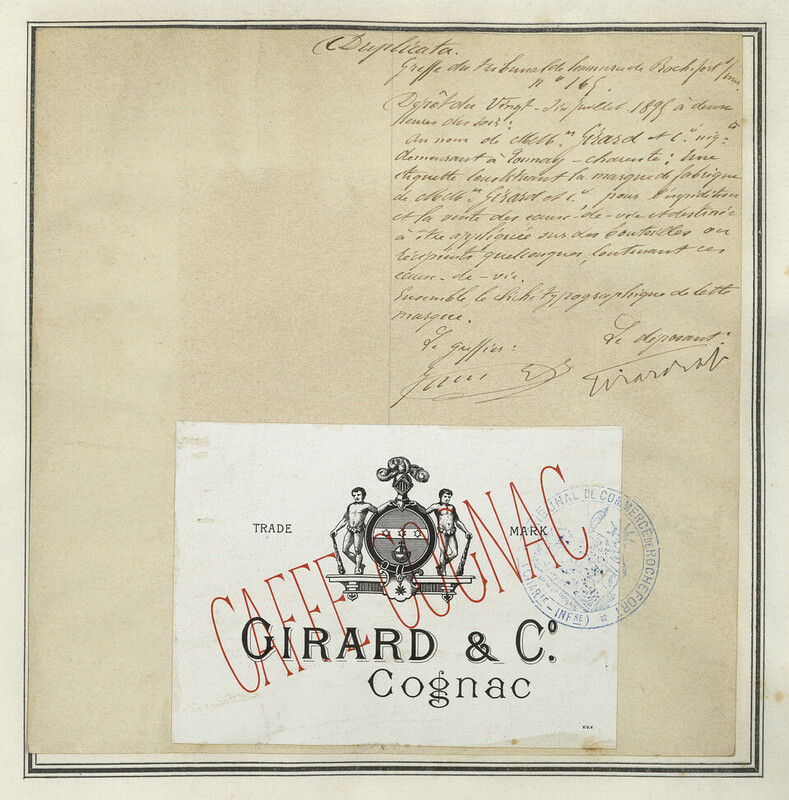 Duplicata.
Greffe du tribunal de commerce de Rochefort s/mer
n° 165.
Dépôt du Vingt-Six juillet 1895 à deux
heures du soir:
Au nom de MM. Girard et Cie nég-ts
demeurant à Tonnay-charente; Une
étiquette constituant la marque de fabrique
de MM. Girard et Cie pour l'expédition
et la vente des eaux-de-vie et destinée
à être appliquée sur des bouteilles ou
récipients quelconques, contenant ces
eaux-de-vie.
Ensemble le cliché typographique de cette
marque.
Le greffier: Le déposant:
TRADE MARK
CAFFE COGNAC
GIRARD & Cº.
Cognac
TRIBUNAL DE COMMERCE DE ROCHEFORT
(CHARTE-INFRE)